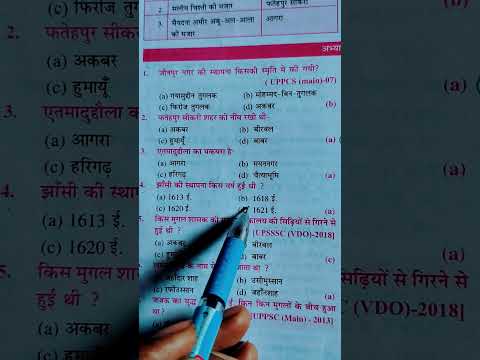 2. सलीम चिश्ती की मजार
फतेहपुर सीकरी
3. सैयदना अमीर अबु-अल-आला की मजार
आगरा
अभ्या
1. जौनपुर नगर की स्थापना किसकी स्मृति में की गयी?
(UPPCS (main)-07)
(a) गयासुद्दीन तुगलक (b) मोहम्मद-बिन-तुगलक
(c) फिरोज तुगलक (d) अकबर (b)
2. फतेहपुर सीकरी शहर की नींव रखी थी-
(a) अकबर (b) बीरबल
(c) हुमायूँ (d) बाबर (a)
3. एतमादुद्दौला का मकबरा है-
(a) आगरा (b)
(c) हरिगढ़ (d) चैत्यभूमि (a)
4. झाँसी की स्थापना किस वर्ष हुई थी ?
(a) 1613 ई. (b) 1618 ई.
(c) 1620 ई. 1621 ई. (a)
5. किस मुगल शासक की कालय की सिड़ियों से गिरने से
हुई थी ? [UPSSSC (VDO)-2018]
(a) अकबर बीरबल
(c) हुमायूँ (d) बाबर (c)
के नाम से जाता था ?
(b)
(d) जहाँनशाह (a)
का युद्ध ई. किन किन मुगलों के बीच हुआ
था ? [UPPSC (Main) - 2013]
(c) फिरोज तुगल
2. फतेहपुर सीकर
(a) अकबर
(c) हुमायूँ
3. एतमादुद्दौला क
(a) आगरा
(c) हरिगढ़
4. झाँसी की स्थाप
(a) 1613 ई.
(c) 1620 ई.
5. किस मुगल शास सिड़ियों से गिरने से
हुई थी ? (VDO)-2018]
(a) अकबर